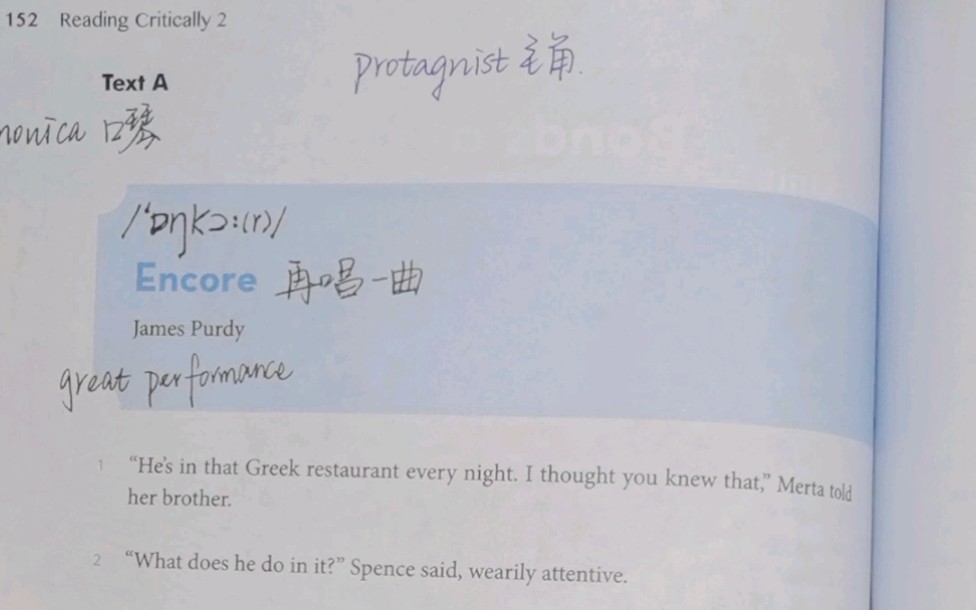 152 Reading Critically 2
protagnist 主角.
Text A
monica 口琴
/'ɒŋkɔ:(r)/
Encore 再唱一曲
James Purdy
great performance
1 “He's in that Greek restaurant every night. I thought you knew that,” Merta told
her brother.
2 “What does he do in it?” Spence said, wearily attentive.